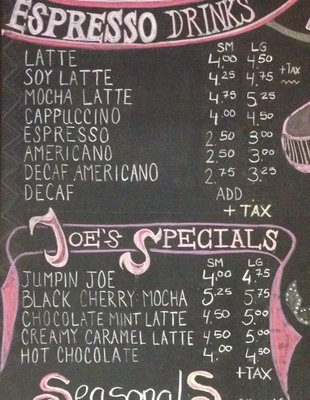 ESPRESSO DRINKS
SM LG
LATTE 4.00 4.50
SOY LATTE 4.25 4.75 +TAX
MOCHA LATTE 4.75 5.25
CAPPUCCINO 4.00 4.50
ESPRESSO 2.50 3.00
AMERICANO 2.50 3.00
DECAF AMERICANO 2.75 3.25
DECAF ADD
+ TAX
JOE'S SPECIALS
SM LG
JUMPIN JOE 4.00 4.75
BLACK CHERRY MOCHA 5.25 5.75
CHOCOLATE MINT LATTE 4.50 5.00
CREAMY CARAMEL LATTE 4.50 5.00
HOT CHOCOLATE 4.00 4.50
+TAX
SEASONALS